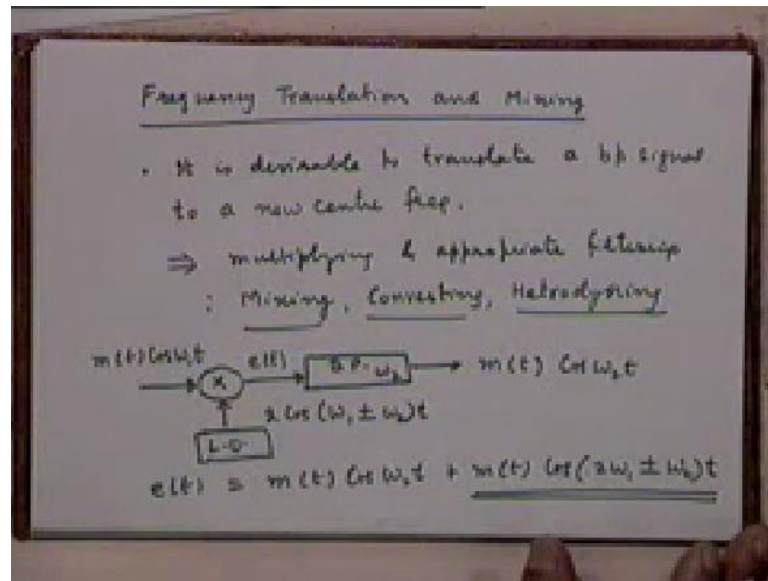 Frequency Translation and Mixing
. It is desirable to translate a bp signal
to a new centre freq.
⇒ multiplying & appropriate filtering
: Mixing, Converting, Hetrodyning
m(t) Cos ω₁t e(t) B.P. ω₂ m(t) Cos ω₂t
X
2 Cos (ω₁ ± ω₂)t
L.O.
e(t) = m(t) Cos ω₂t + m(t) Cos(2ω₁ ± ω₂)t